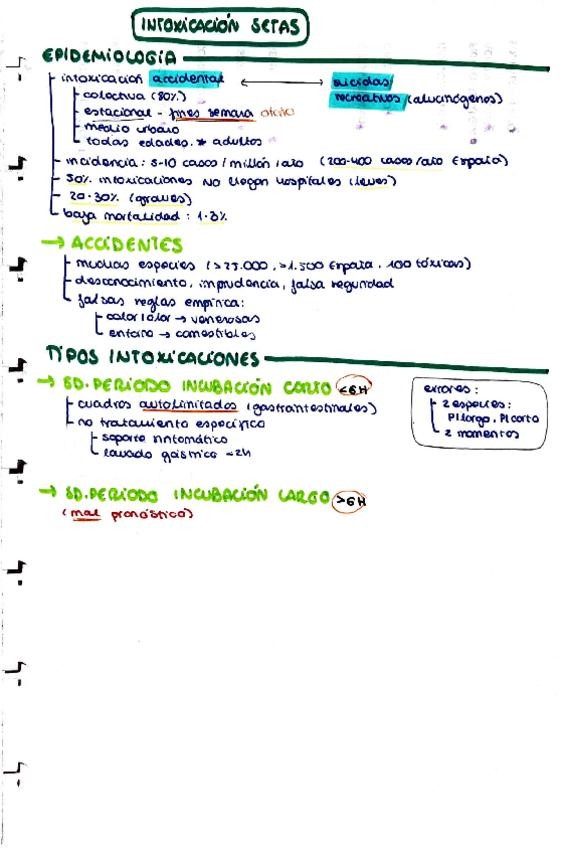 INTOXICACIÓN SETAS
EPIDEMIOLOGÍA
intoxicación accidental ↔ suicidas/
colectiva (80%) recreativos (alucinógenos)
estacional - fines semana otoño
medio urbano
todas edades. * adultos
incidencia: 5-10 casos / millón / año (200-400 casos/año España)
50% intoxicaciones NO llegan hospitales (leves)
20-30% (graves)
baja mortalidad: 1-3%
→ ACCIDENTES
muchas especies (>25.000, >1.500 España, 100 tóxicas)
desconocimiento, imprudencia, falsa seguridad
falsas reglas empírica:
color/olor → venenosas
entorno → comestibles
TIPOS INTOXICACIONES
→ SD. PERIODO INCUBACIÓN CORTO <6H
cuadros autolimitados (gastrointestinales)
no tratamiento específico
soporte sintomático
lavado gástrico <2h
errores:
2 especies:
PI largo, PI corto
2 momentos
→ SD. PERIODO INCUBACIÓN LARGO >6H
(mal pronóstico)